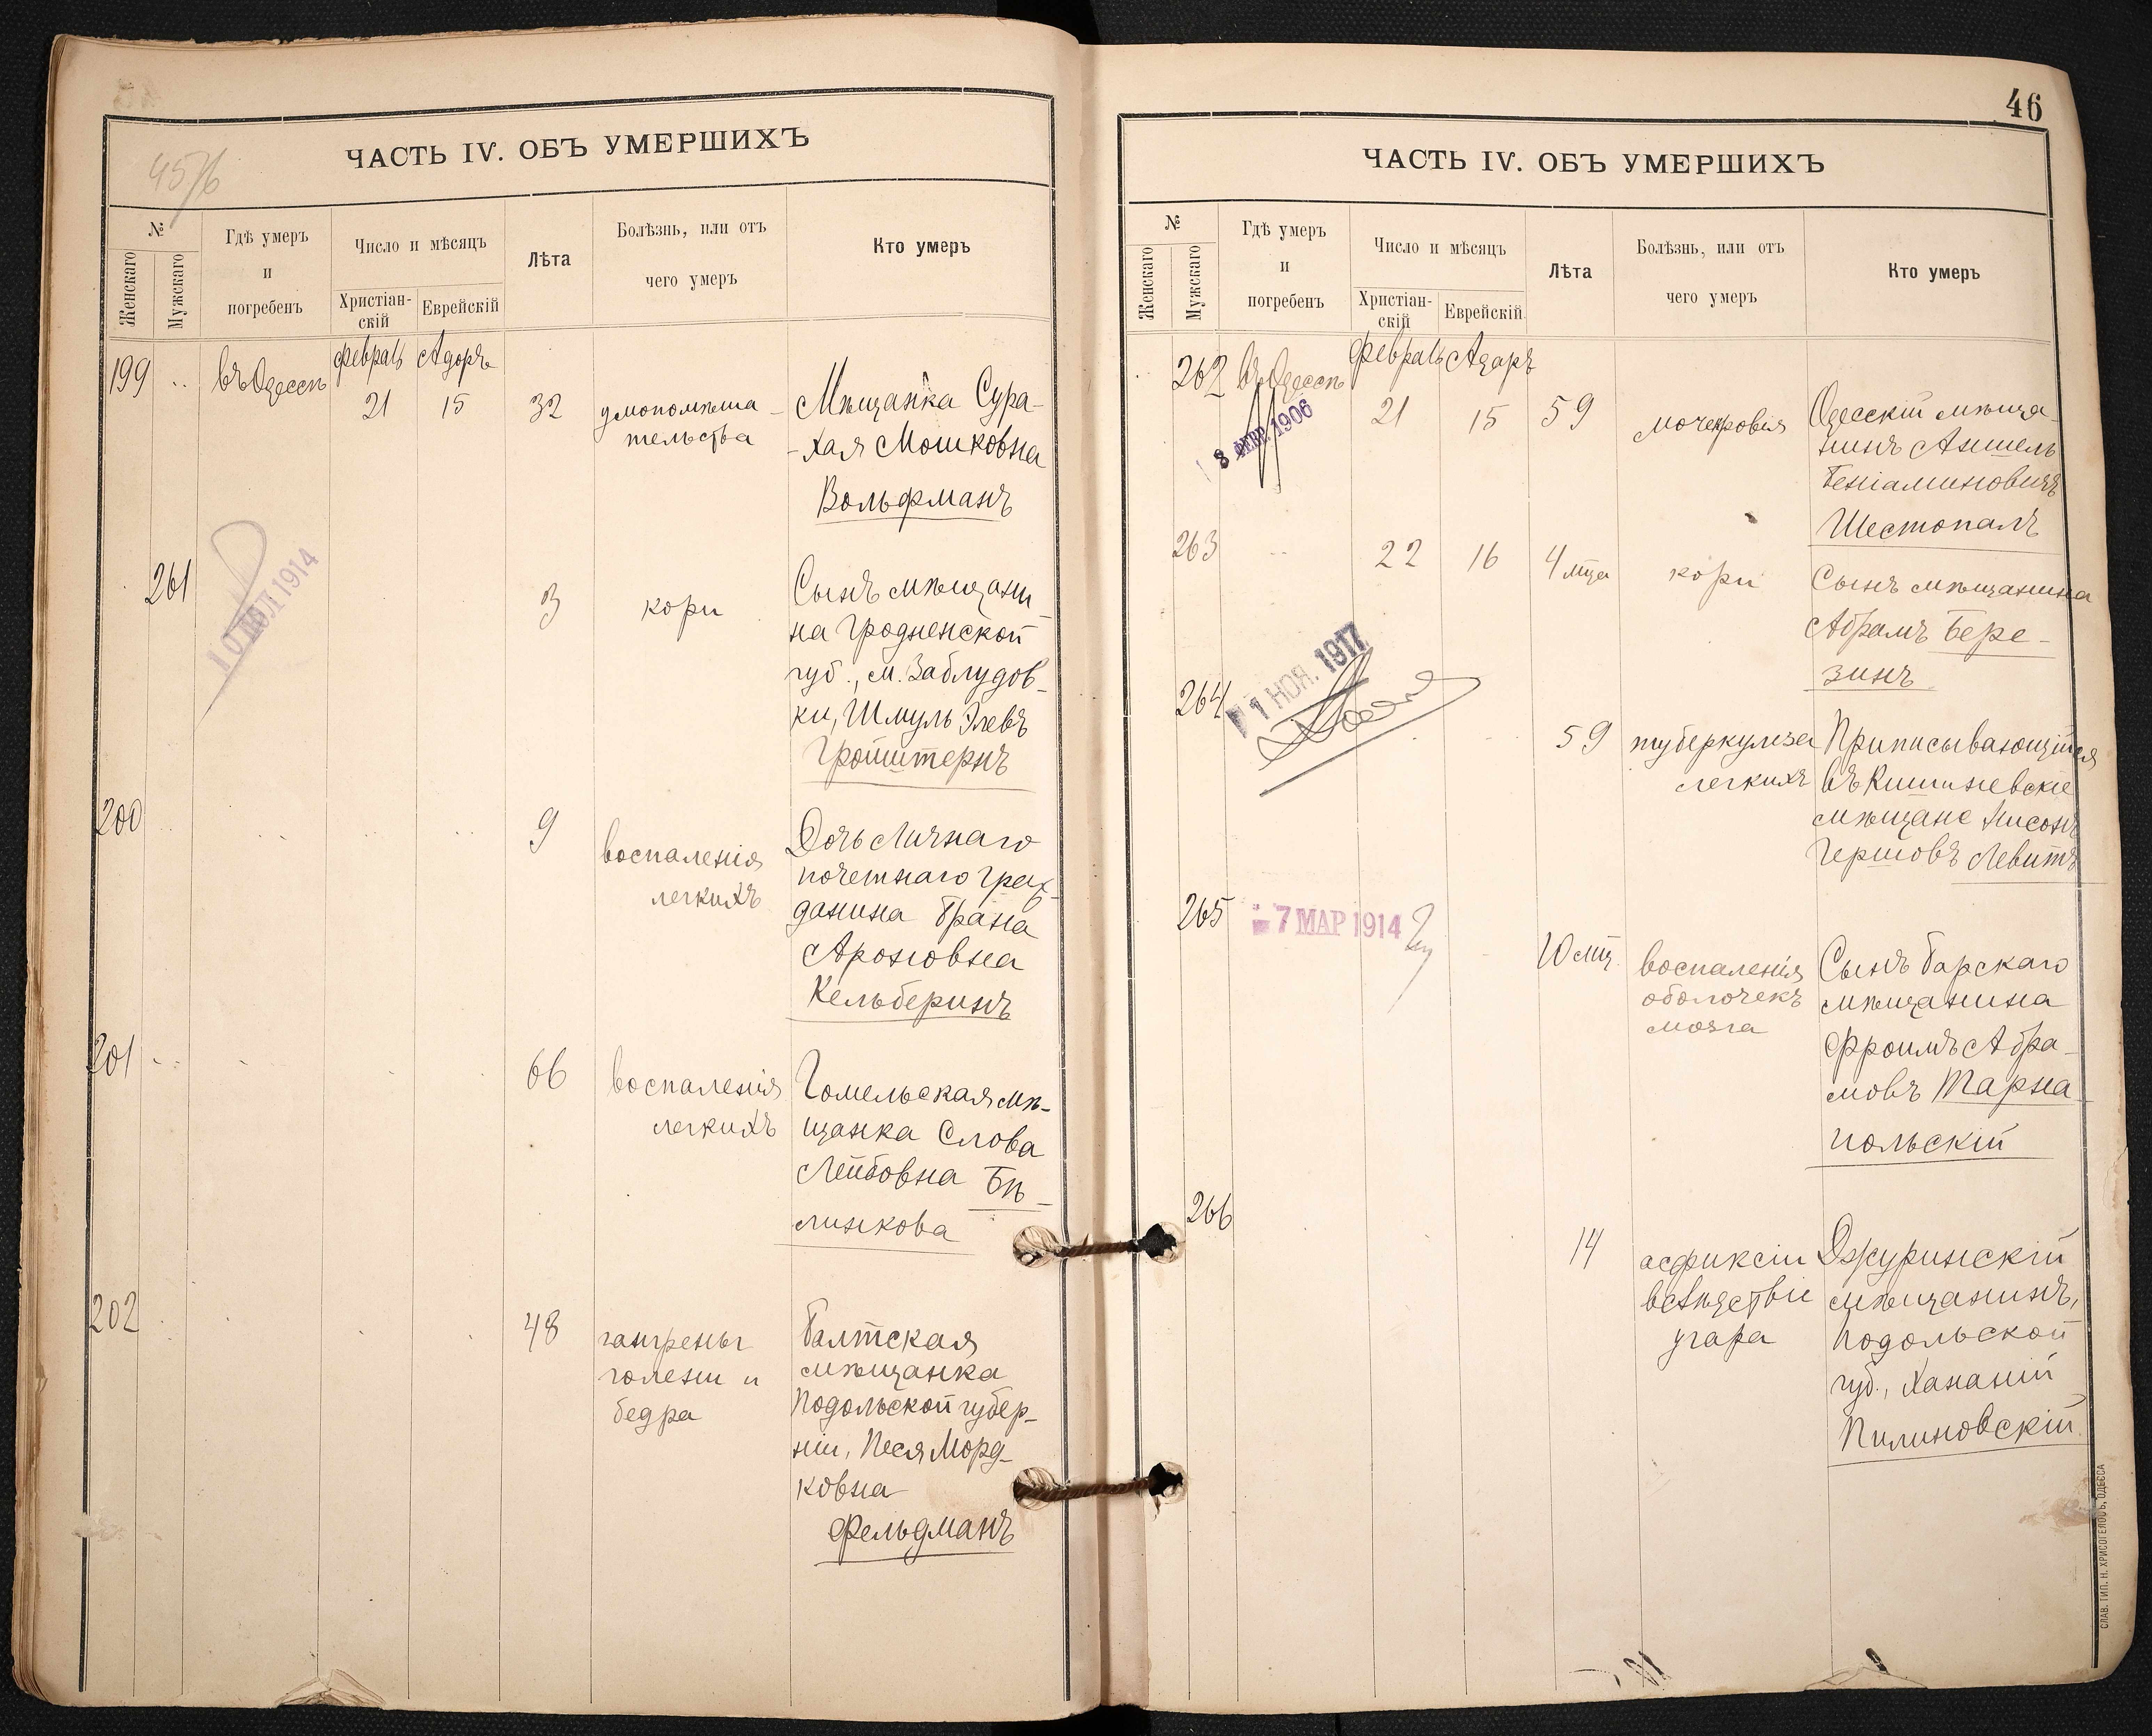 45/б
ЧАСТЬ IV. ОБЪ УМЕРШИХЪ
№
Женскаго
Мужскаго
Гдѣ умеръ
и
погребенъ
Число и мѣсяцъ
Христіан-
скій
Еврейскій
Лѣта
Болѣзнь, или отъ
чего умеръ
Кто умеръ
199
въ Одессѣ
февраль
Адаръ
21
15
32
умопомѣша-
тельства
Мѣщанка Сура-
-Хая Мошковна
Вольфманъ
261
10 ІЮЛ 1914
3
кори
Сынъ мѣщани-
на Гродненской
губ., м. Заблудов-
ки, Шмуль Элевъ
Гройштернъ
200
9
воспаленія
легкихъ
Дочь личнаго
почетнаго граж-
данина Брана
Ароновна
Кельберинъ
201
66
воспаленія
легкихъ
Гомельская мѣ-
щанка Слова
Лейбовна Бѣ-
линкова
202
48
гангрены
голени и
бедра
Балтская
мѣщанка
Подольской губер-
ніи, Песя Морд-
ковна
Фельдманъ
46
ЧАСТЬ IV. ОБЪ УМЕРШИХЪ
№
Женскаго
Мужскаго
Гдѣ умеръ
и
погребенъ
Число и мѣсяцъ
Христіан-
скій
Еврейскій
Лѣта
Болѣзнь, или отъ
чего умеръ
Кто умеръ
262
въ Одессѣ
февраль
Адаръ
8 ФЕВР. 1906
21
15
59
мочекровія
Одесскій мѣща-
нинъ Аншель
Беніаминовичъ
Шестопалъ
263
22
16
4 мца
кори
Сынъ мѣщанина
Абрамъ Бере-
зинъ
264
11 НОЯ. 1917
59
туберкулеза
легкихъ
Приписывающійся
въ Кишиневскіе
мѣщане Нисонъ
Гершовъ Левитъ
265
7 МАР 1914
10 мц.
воспаленія
оболочекъ
мозга
Сынъ Барскаго
мѣщанина
Фроимъ Абра-
мовъ Тарна-
польскій
266
14
асфиксіи
вслѣдствіе
угара
Джуринскій
мѣщанинъ,
Подольской
губ., Хананій
Пилиновскій
СЛАВ. ТИП. Н. ХРИСОГЕЛОСЪ, ОДЕССА